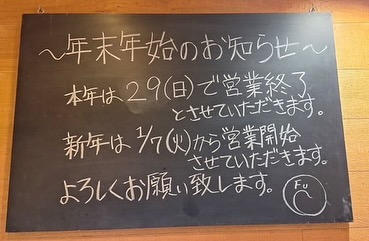 ～年末年始のお知らせ～
本年は29(日)で営業終了
とさせていただきます。
新年は1/7(火)から営業開始
させていただきます。
よろしくお願い致します。
Fu